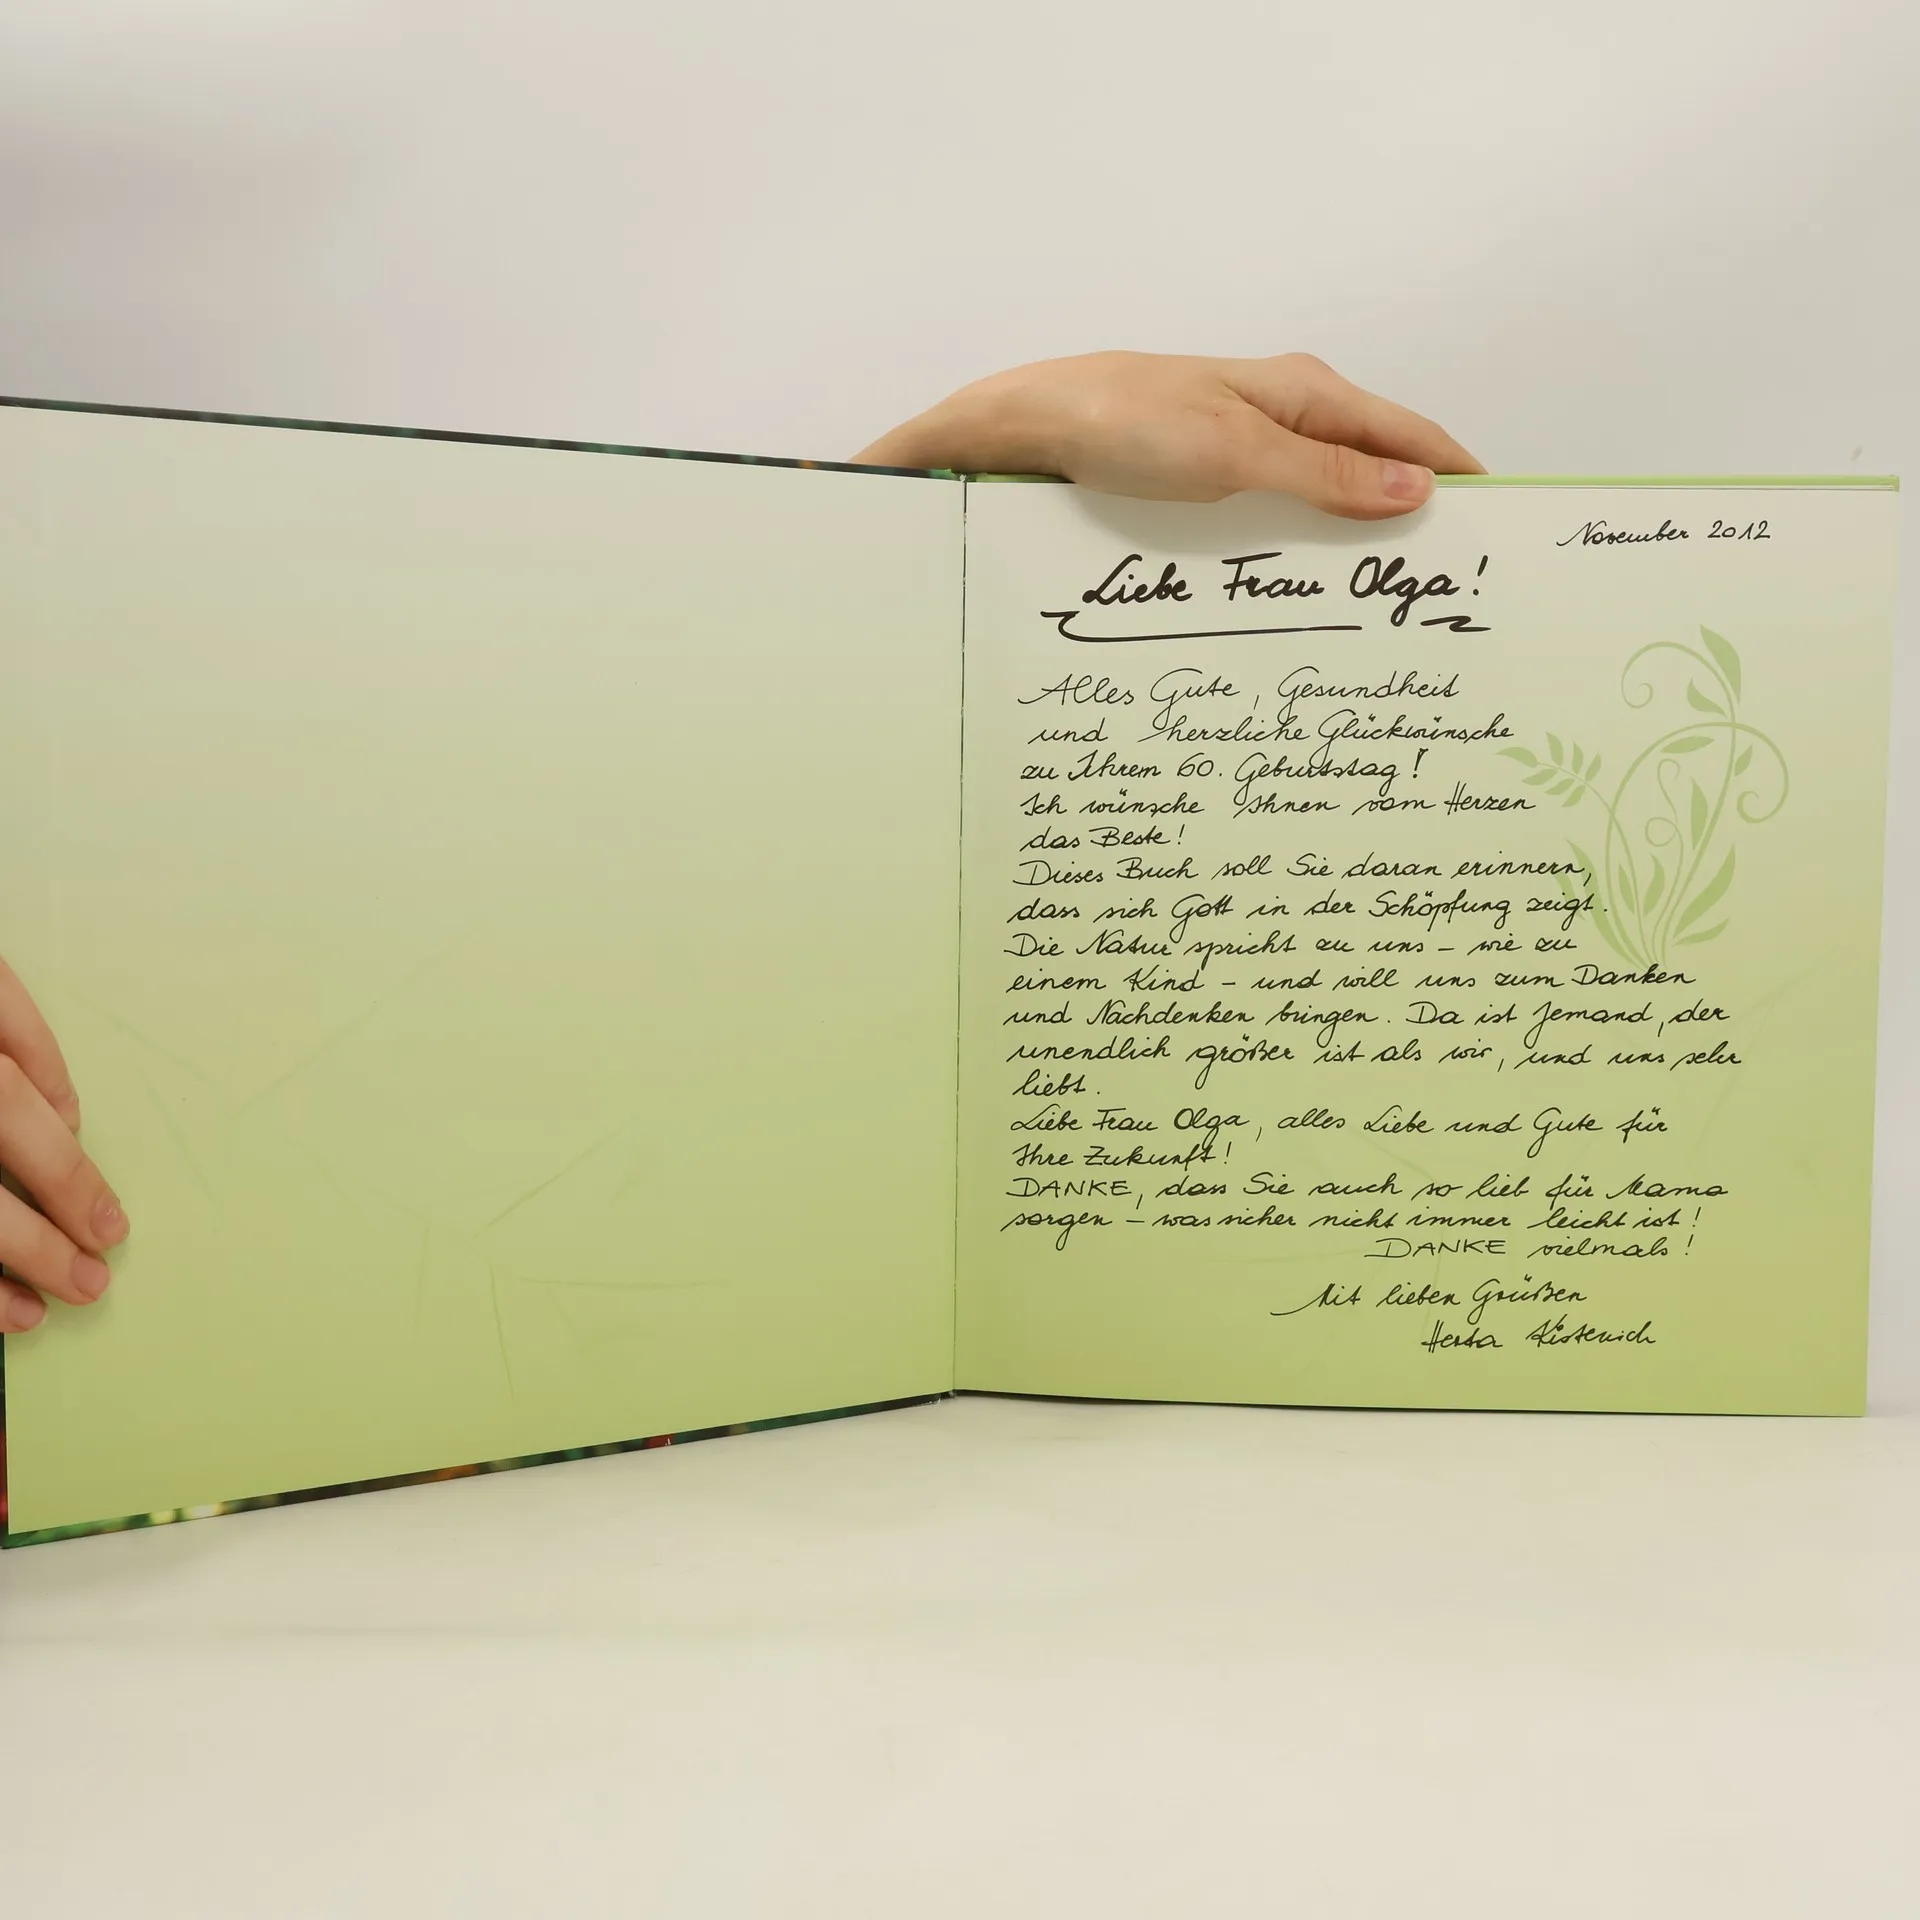 November 2012
Liebe Frau Olga!
Alles Gute, Gesundheit
und herzliche Glückwünsche
zu Ihrem 60. Geburtstag!
Ich wünsche Ihnen vom Herzen
das Beste!
Dieses Buch soll Sie daran erinnern,
dass sich Gott in der Schöpfung zeigt.
Die Natur spricht zu uns – wie zu
einem Kind – und will uns zum Danken
und Nachdenken bringen. Da ist Jemand, der
unendlich größer ist als wir, und uns sehr
liebt.
Liebe Frau Olga, alles Liebe und Gute für
Ihre Zukunft!
DANKE, dass Sie auch so lieb für Mama
sorgen – was sicher nicht immer leicht ist!
DANKE vielmals!
Mit lieben Grüßen
Herta